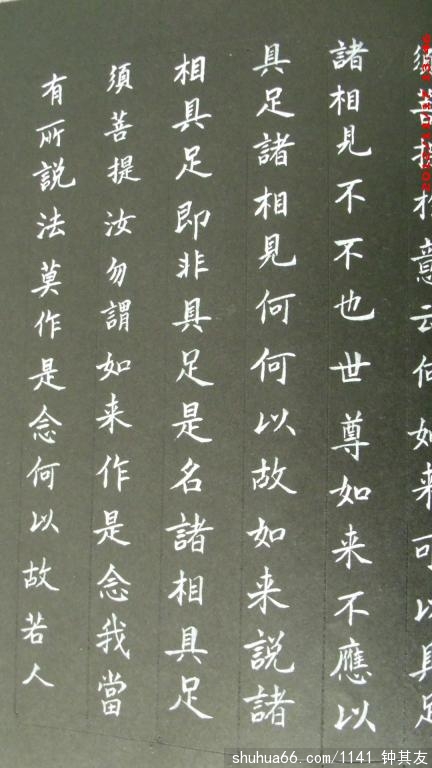 須菩提於意云何如来可以具足
諸相見不不也世尊如来不應以
具足諸相見何何以故如来説諸
相具足即非具足是名諸相具足
須菩提汝勿謂如来作是念我當
有所説法莫作是念何以故若人
shuhua66.com/1141 钟其友